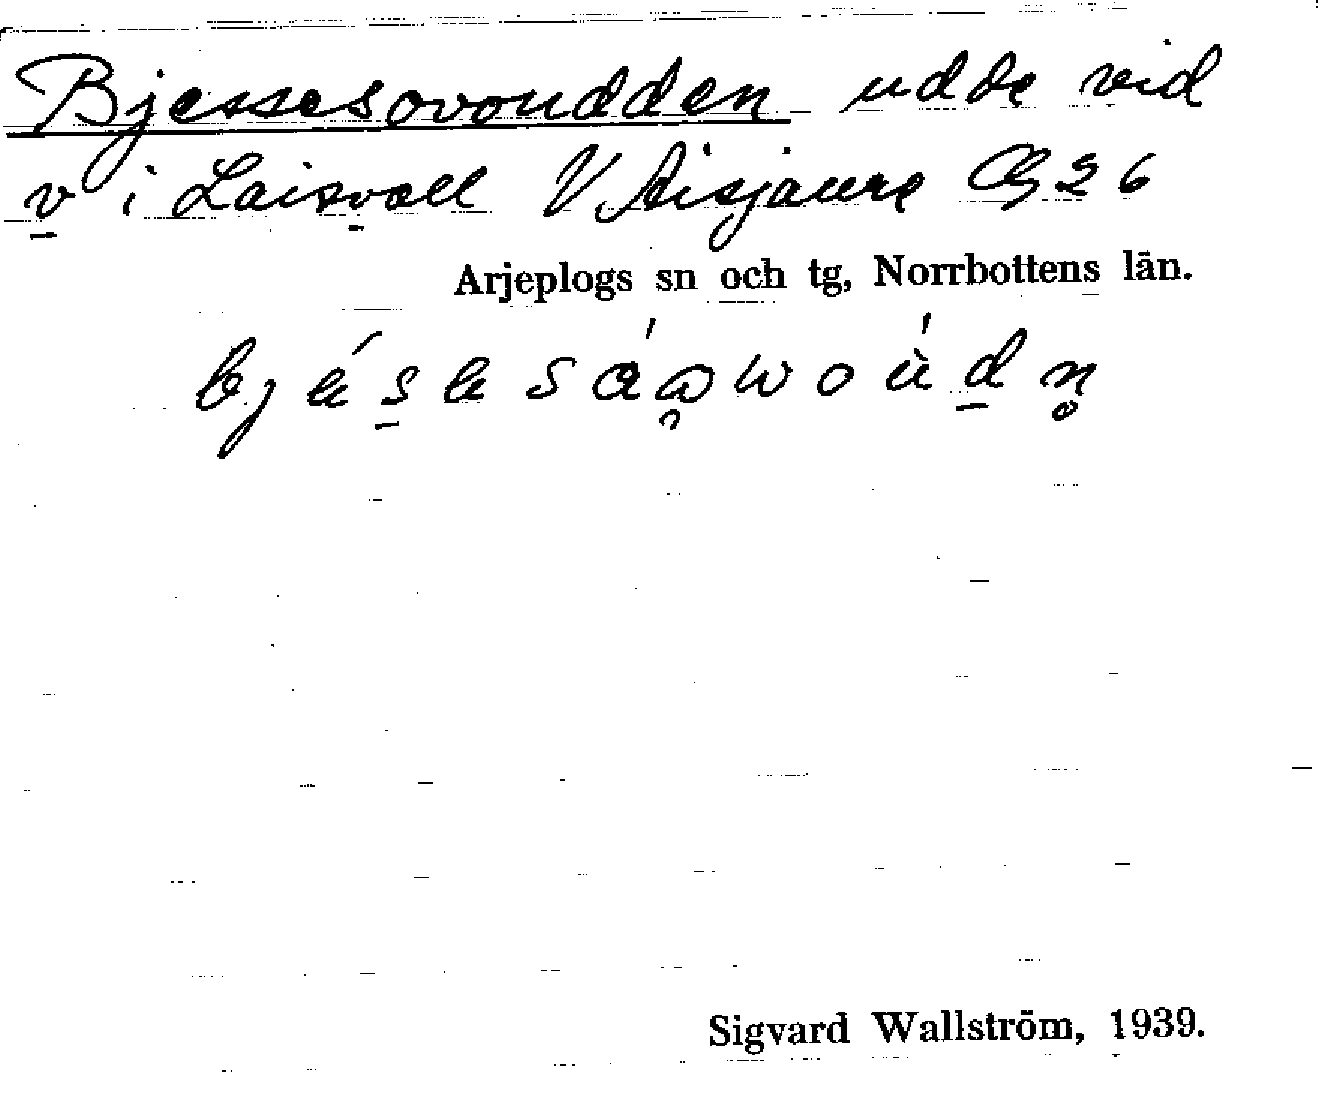 Bjessesovoudden udde vid
v i Laisvall V Aisjaure 26
Arjeplogs sn och tg, Norrbottens län.
Sigvard Wallström, 1939.